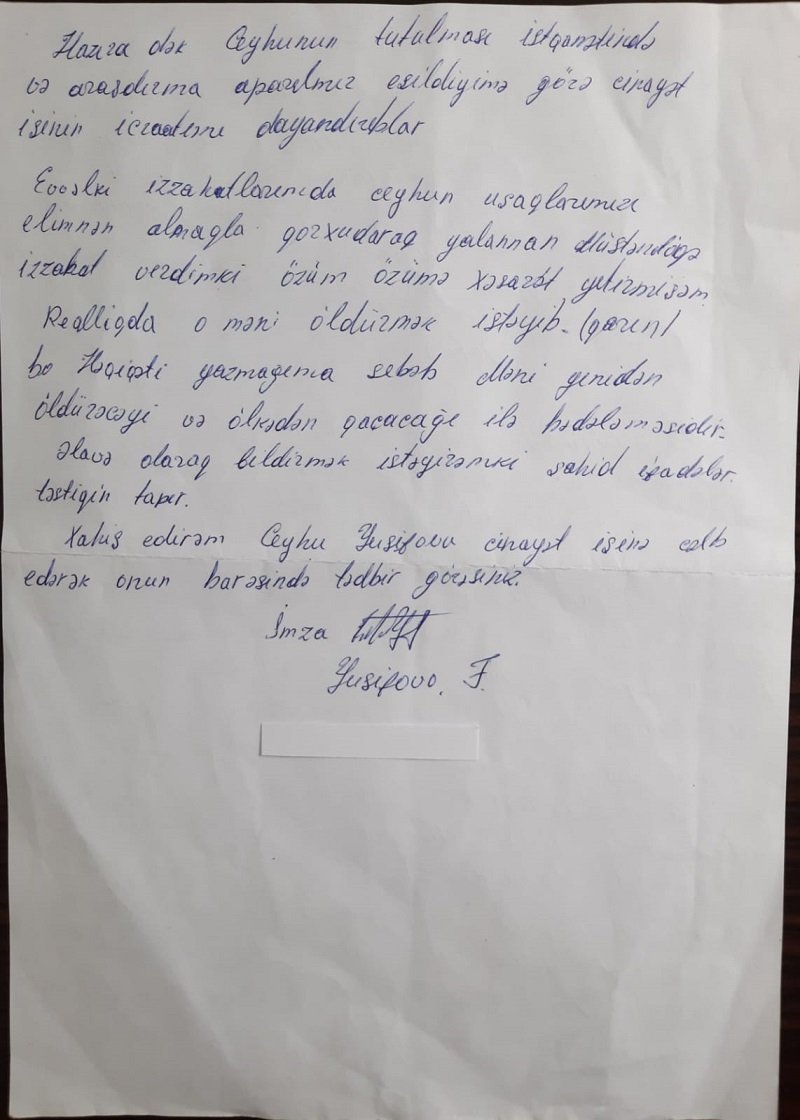 Hazıra dək Ceyhunun tutulması istqamətində
və araşdırma aparılmır əsildiyimə görə cinayət
işinin icraatını dayandırıblar
Əvvəlki izzahatlarımda ceyhun uşaqlarımızı
əlimnən almaqla qorxudaraq yalannan Müstəntiqə
izzahat verdimki özüm özümə xəsarət yetirmişəm
Realliqda o məni öldürmək istəyib. (qarın)
bo Həqiqəti yazmağıma səbəb Məni yenidən
öldürəcəyi və ölkədən qacacağı ilə hədələməsidir.
Əlavə olaraq bildirmək istəyirəmki şahid ifadələr.
təstiqin tapır.
Xahiş edirəm Ceyhu Yusifovu cinayət işinə cəlb
edərək onun barəsində tədbir görəsiniz.
İmza
Yusifovo. F.